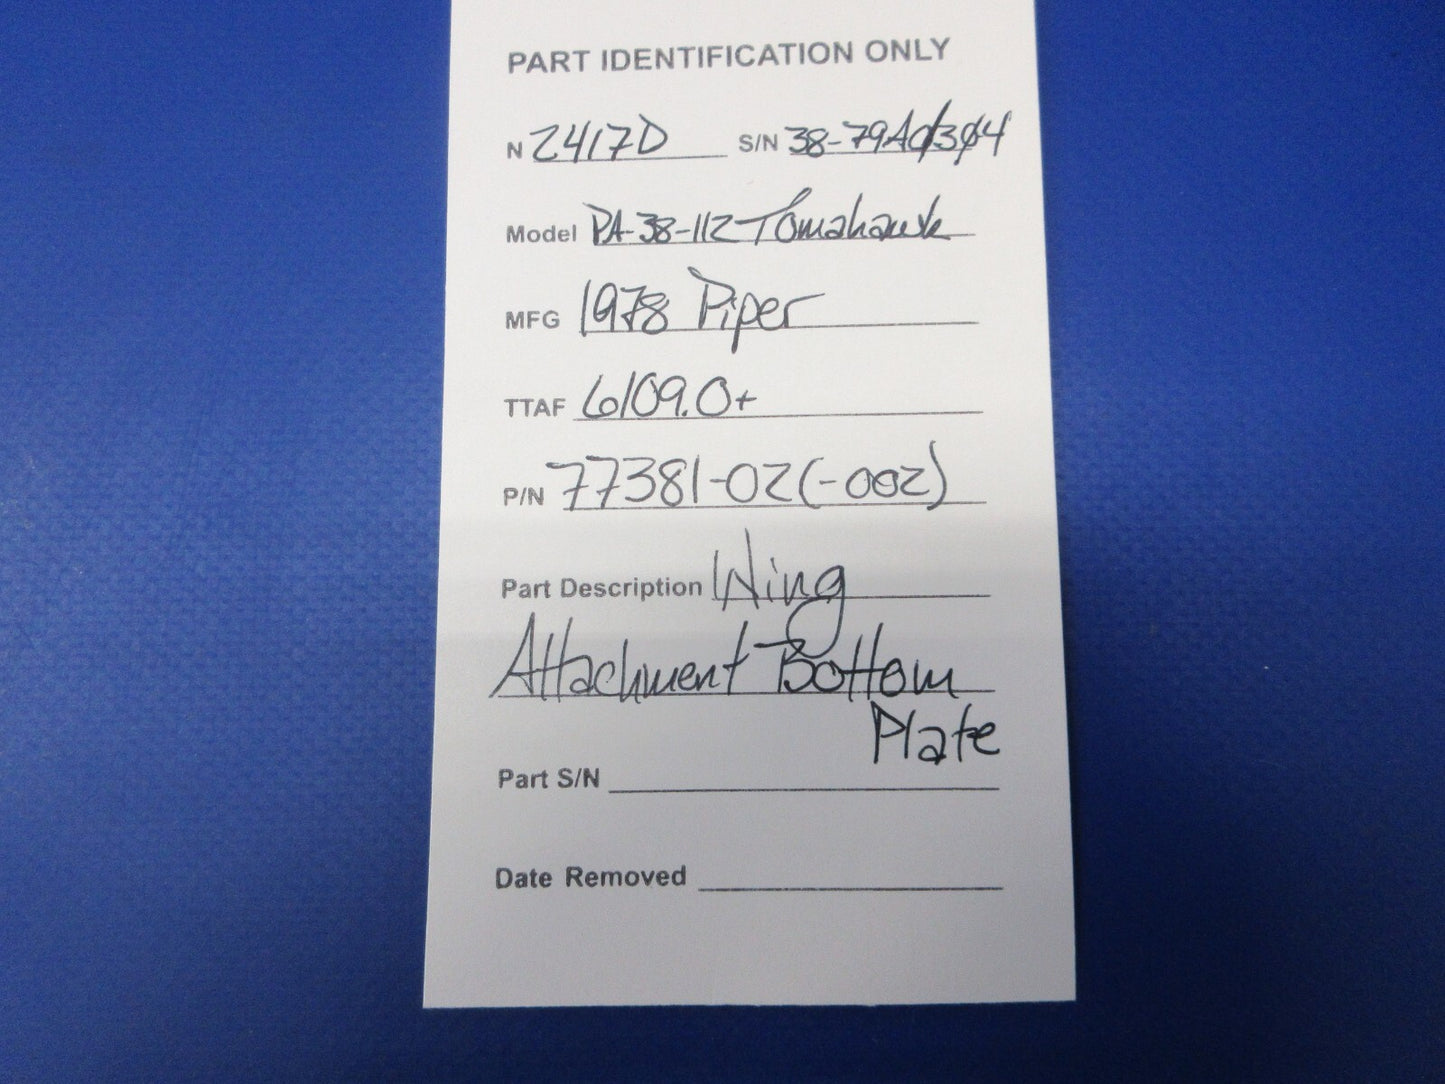 PART IDENTIFICATION ONLY
N 2417D S/N 38-79A0304
Model PA-38-112 Tomahawk
MFG 1978 Piper
TTAF 6109.0+
P/N 77381-02(-002)
Part Description Wing
Attachment Bottom
Plate
Part S/N
Date Removed